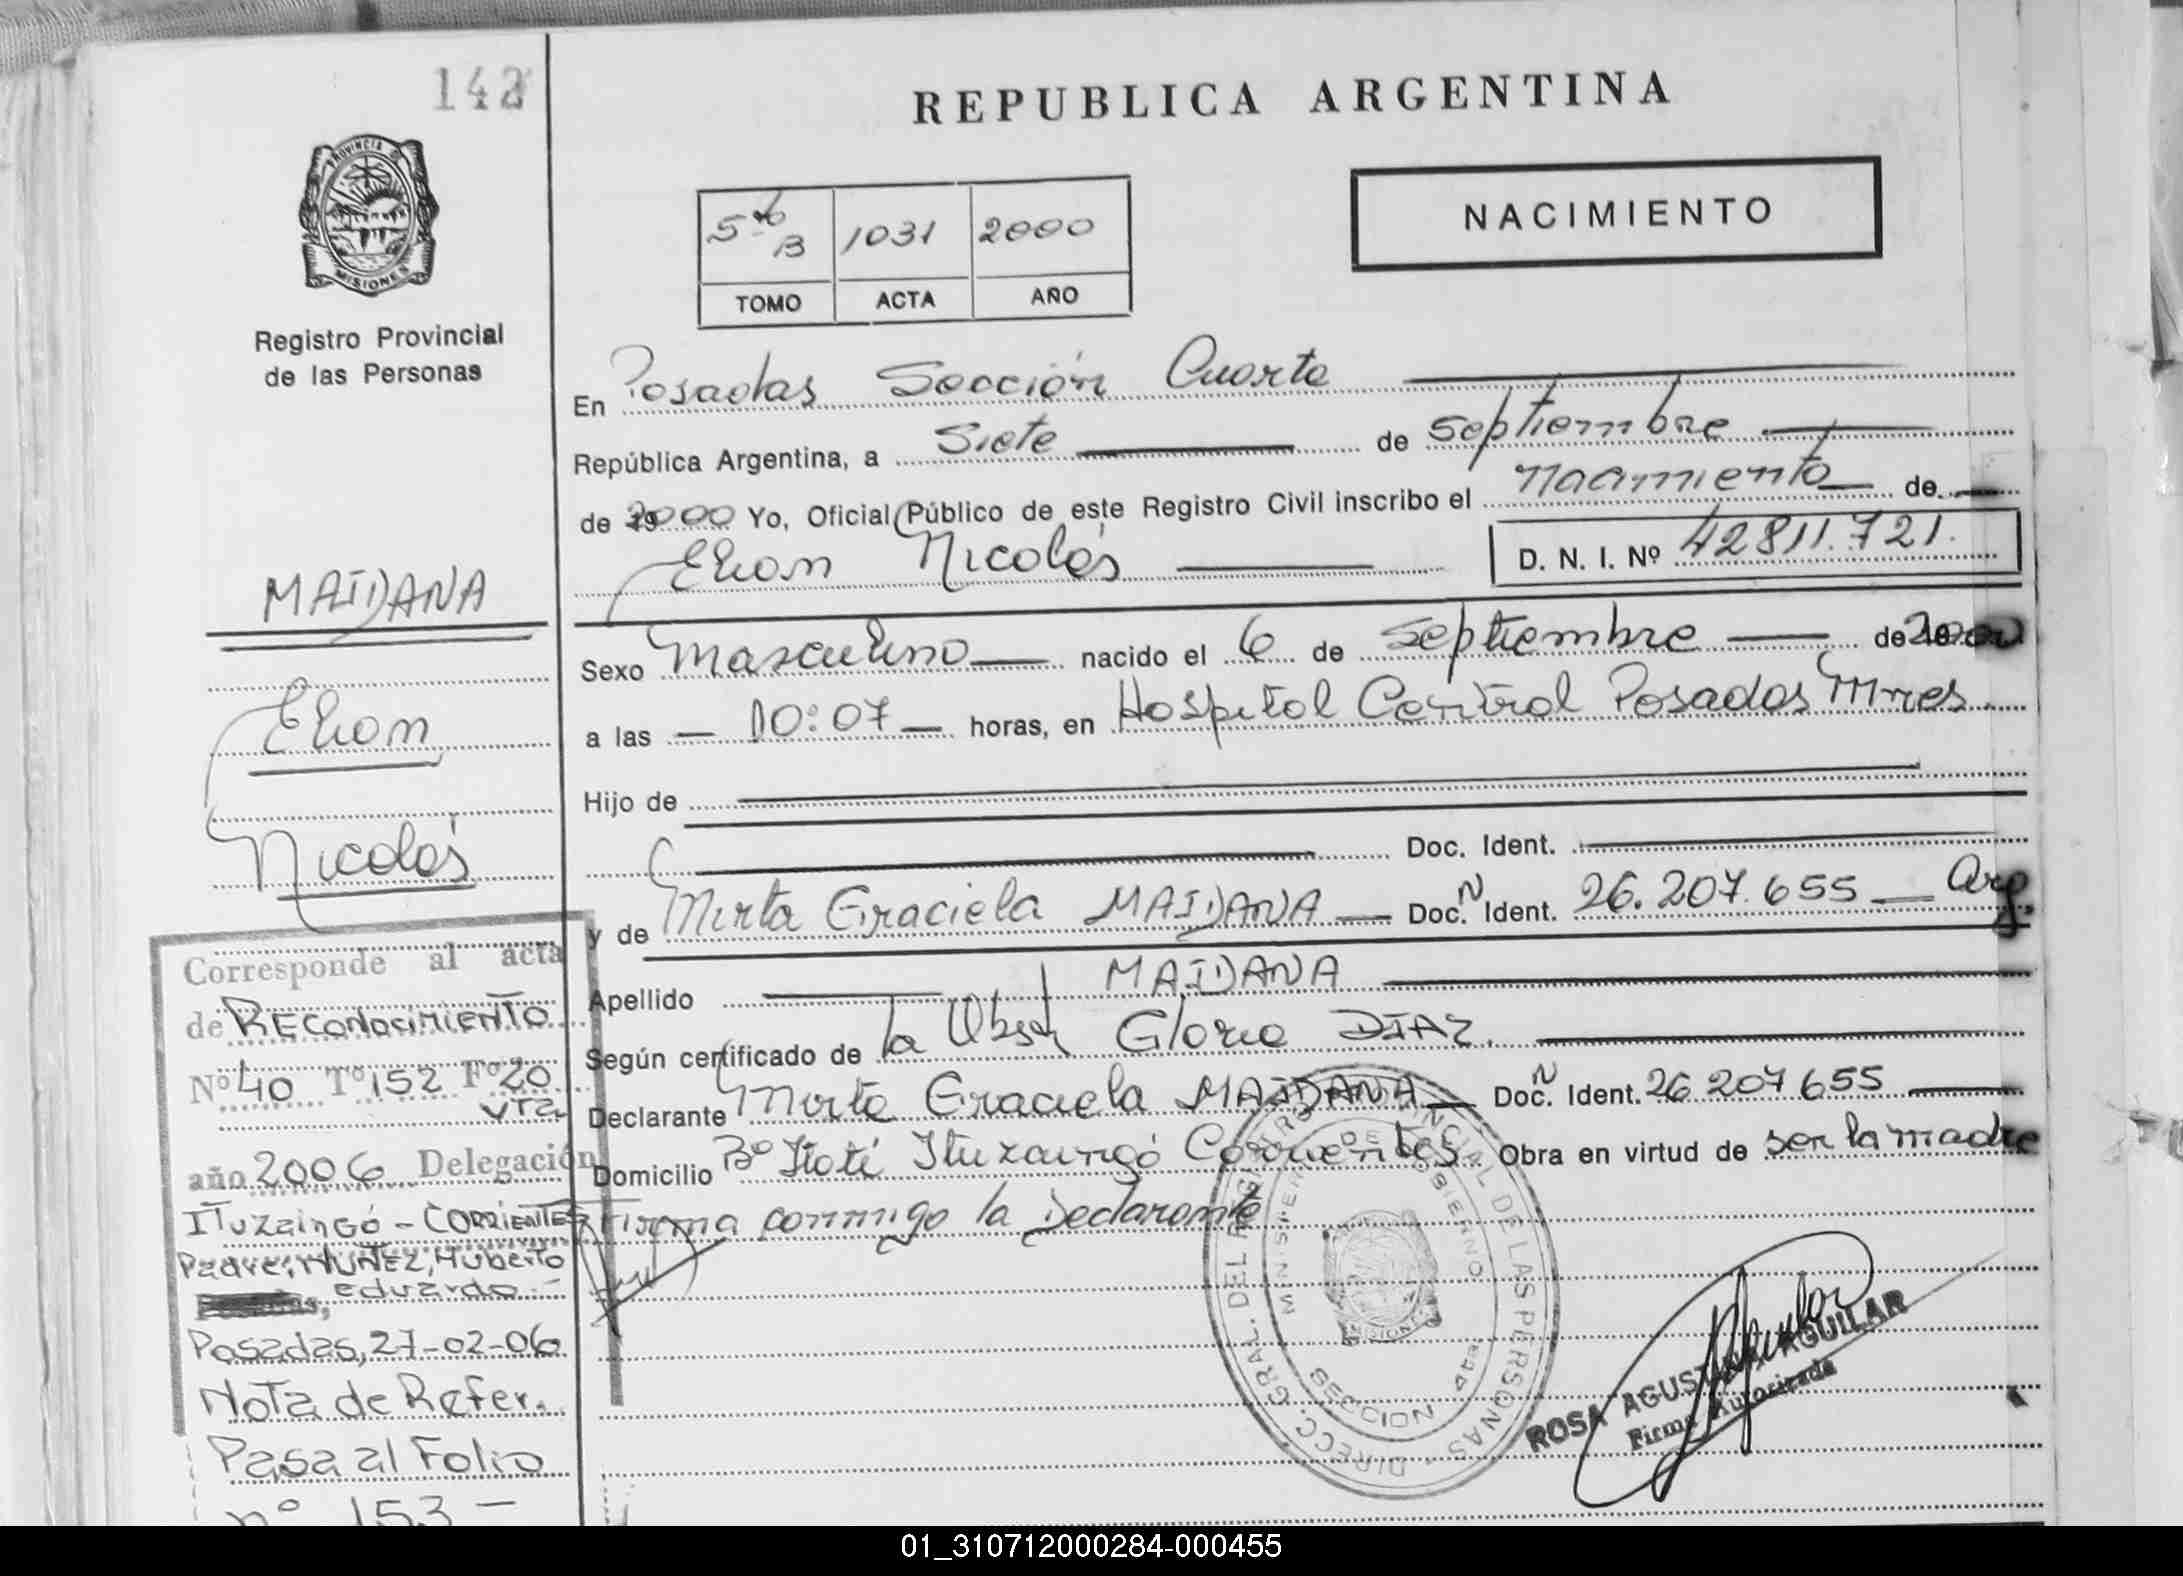 142
REPUBLICA ARGENTINA
PROVINCIA DE
MISIONES
Registro Provincial
de las Personas
5to B 1031 2000
TOMO ACTA AÑO
NACIMIENTO
En Posadas Sección Cuarta
República Argentina, a Siete de septiembre
de 2000 Yo, Oficial Público de este Registro Civil inscribo el nacimiento de
Elian Nicolás D. N. I. Nº 42811.721.
Sexo Masculino nacido el 6 de septiembre de 2000
a las - 10:07 - horas, en Hospital Central Posadas Mnes
Hijo de
Doc. Ident.
y de Mirta Graciela MAIDANA Doc. N Ident. 26.207.655 - Arg.
Apellido MAIDANA
Según certificado de la Obst Gloria DIAZ.
Declarante Mirta Graciela MAIDANA Doc. N Ident. 26 207 655
Domicilio Bº Itatí Ituzaingó Corrientes Obra en virtud de ser la madre
Firma conmigo la Declarante
MAIDANA
Elian
Nicolás
Corresponde al acta
de RECONOCIMIENTO
Nº 40 Tº 152 Fº 20
vta
año 2006 Delegación
Ituzaingó - CORRIENTES
Padre: NUÑEZ, Huberto
eduardo.-
Posadas, 27-02-06
Nota de Refer.
Pasa al Folio
nº 153 -
DIRECC. GRAL. DEL REGISTRO PROVINCIAL DE LAS PERSONAS
MINISTERIO DE GOBIERNO
MISIONES
SECCION 4ta
ROSA AGUSTINA AGUILAR
Firma Autorizada
01_310712000284-000455